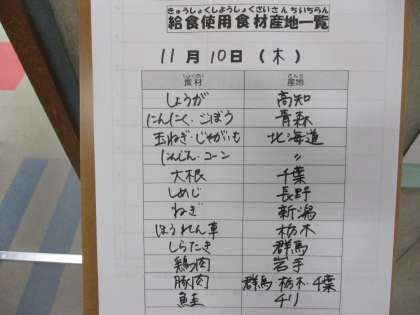 きゅうしょくしようしょくざいさんちいちらん
給食使用食材産地一覧
11月10日(木)
しょくざい さんち
食材 産地
しょうが 高知
にんにく・ごぼう 青森
玉ねぎ・じゃがいも 北海道
にんじん・コーン 〃
大根 千葉
しめじ 長野
ねぎ 新潟
ほうれん草 栃木
しらたき 群馬
鶏肉 岩手
豚肉 群馬 栃木・千葉
鮭 チリ